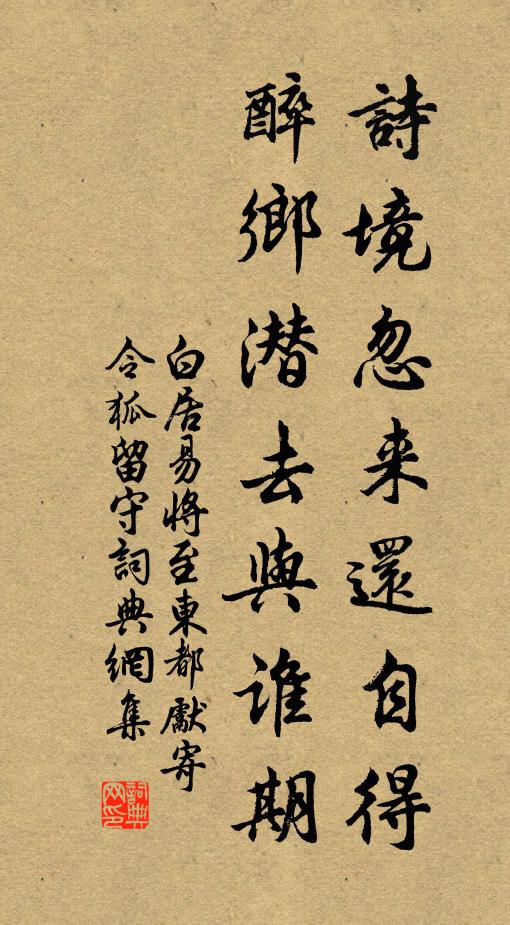 詩境忽来還自得
醉鄉潛去與誰期
白居易將至東都獻寄
令狐留守詞典網集
詞典
网印